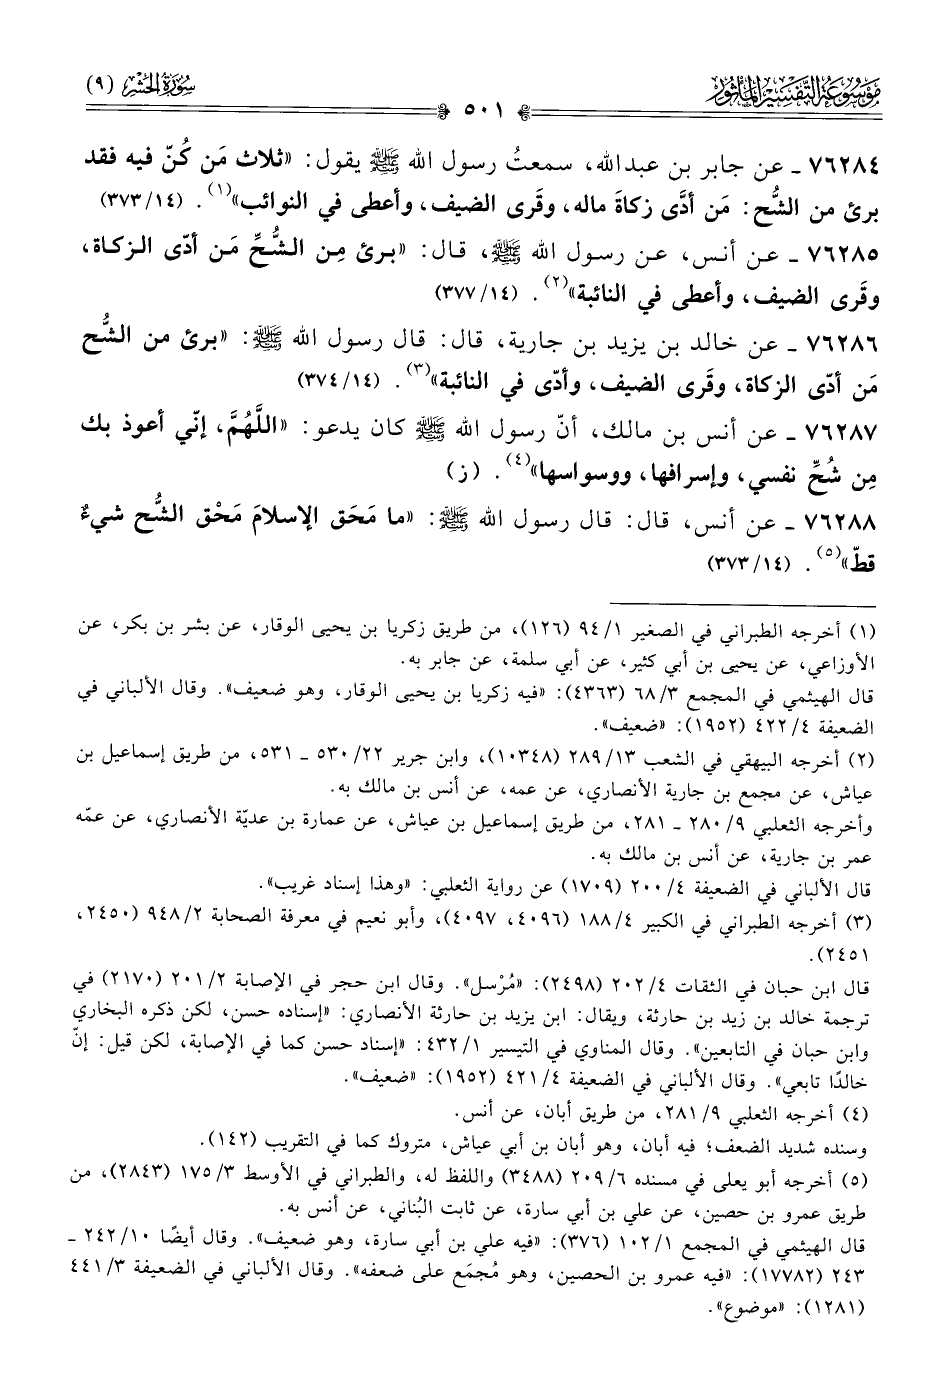 موسوعة التفسير المأثور
سورة الحشر (٩)
٥٠١
٧٦٢٨٤ ـ عن جابر بن عبدالله، سمعتُ رسول الله ﷺ يقول: «ثلاث مَن كُنّ فيه فقد
برئ من الشُّح: مَن أدَّى زكاةَ ماله، وقَرى الضيف، وأعطى في النوائب»(١). (١٤/٣٧٣)
٧٦٢٨٥ ـ عن أنس، عن رسول الله ﷺ، قال: «برئ مِن الشُّحِّ مَن أدّى الزكاة،
وقَرى الضيف، وأعطى في النائبة»(٢). (١٤/٣٧٧)
٧٦٢٨٦ ـ عن خالد بن يزيد بن جارية، قال: قال رسول الله ﷺ: «برئ من الشُّح
مَن أدّى الزكاة، وقَرى الضيف، وأدّى في النائبة»(٣). (١٤/٣٧٤)
٧٦٢٨٧ ـ عن أنس بن مالك، أنّ رسول الله ﷺ كان يدعو: «اللَّهُمَّ، إنّي أعوذ بك
مِن شُحِّ نفسي، وإسرافها، ووسواسها»(٤). (ز)
٧٦٢٨٨ ـ عن أنس، قال: قال رسول الله ﷺ: «ما مَحَق الإسلامَ مَحْق الشُّح شيءٌ
قطّ»(٥). (١٤/٣٧٣)
(١) أخرجه الطبراني في الصغير ١/٩٤ (١٢٦)، من طريق زكريا بن يحيى الوقار، عن بشر بن بكر، عن
الأوزاعي، عن يحيى بن أبي كثير، عن أبي سلمة، عن جابر به.
قال الهيثمي في المجمع ٣/٦٨ (٤٣٦٣): «فيه زكريا بن يحيى الوقار، وهو ضعيف». وقال الألباني في
الضعيفة ٤/٤٢٢ (١٩٥٢): «ضعيف».
(٢) أخرجه البيهقي في الشعب ١٣/٢٨٩ (١٠٣٤٨)، وابن جرير ٢٢/٥٣٠ ـ ٥٣١، من طريق إسماعيل بن
عياش، عن مجمع بن جارية الأنصاري، عن عمه، عن أنس بن مالك به.
وأخرجه الثعلبي ٩/٢٨٠ ـ ٢٨١، من طريق إسماعيل بن عياش، عن عمارة بن عديّة الأنصاري، عن عمّه
عمر بن جارية، عن أنس بن مالك به.
قال الألباني في الضعيفة ٤/٢٠٠ (١٧٠٩) عن رواية الثعلبي: «وهذا إسناد غريب».
(٣) أخرجه الطبراني في الكبير ٤/١٨٨ (٤٠٩٦، ٤٠٩٧)، وأبو نعيم في معرفة الصحابة ٢/٩٤٨ (٢٤٥٠،
٢٤٥١).
قال ابن حبان في الثقات ٤/٢٠٢ (٢٤٩٨): «مُرْسل». وقال ابن حجر في الإصابة ٢/٢٠١ (٢١٧٠) في
ترجمة خالد بن زيد بن حارثة، ويقال: ابن يزيد بن حارثة الأنصاري: «إسناده حسن، لكن ذكره البخاري
وابن حبان في التابعين». وقال المناوي في التيسير ١/٤٣٢: «إسناد حسن كما في الإصابة، لكن قيل: إنّ
خالدًا تابعي». وقال الألباني في الضعيفة ٤/٤٢١ (١٩٥٢): «ضعيف».
(٤) أخرجه الثعلبي ٩/٢٨١، من طريق أبان، عن أنس.
وسنده شديد الضعف؛ فيه أبان، وهو أبان بن أبي عياش، متروك كما في التقريب (١٤٢).
(٥) أخرجه أبو يعلى في مسنده ٦/٢٠٩ (٣٤٨٨) واللفظ له، والطبراني في الأوسط ٣/١٧٥ (٢٨٤٣)، من
طريق عمرو بن حصين، عن علي بن أبي سارة، عن ثابت البُناني، عن أنس به.
قال الهيثمي في المجمع ١/١٠٢ (٣٧٦): «فيه علي بن أبي سارة، وهو ضعيف». وقال أيضًا ١٠/٢٤٢ ـ
٢٤٣ (١٧٧٨٢): «فيه عمرو بن الحصين، وهو مُجمَع على ضعفه». وقال الألباني في الضعيفة ٣/٤٤١
(١٢٨١): «موضوع».